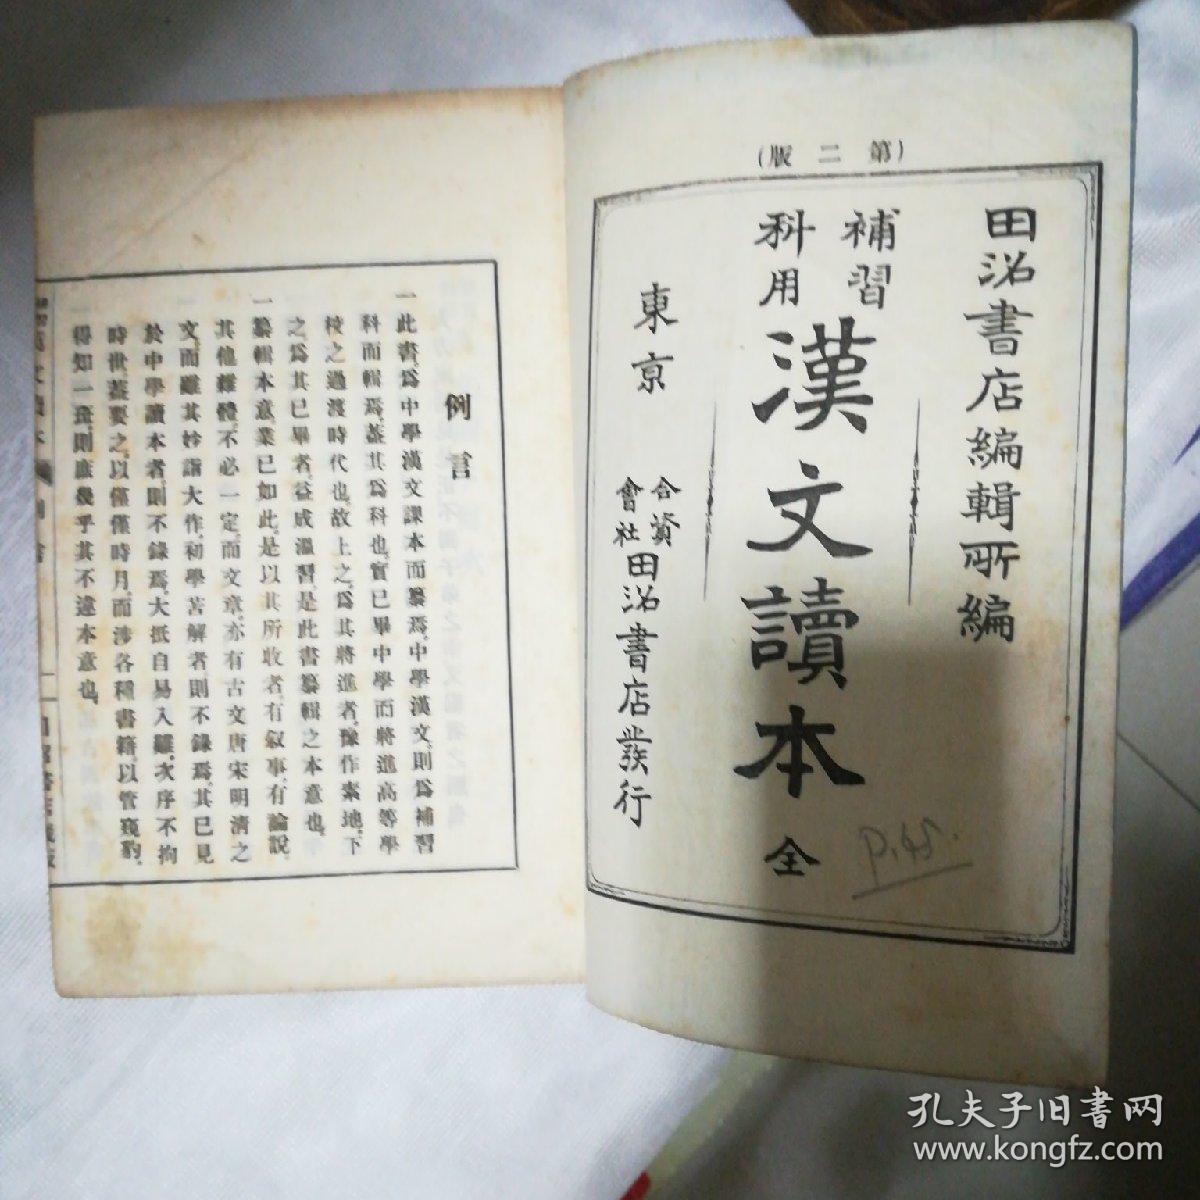 (第二版)
田沼書店編輯所編
補習
科用
漢文讀本 全
東京
合資
會社
田沼書店發行
P.45.
例言
一此書爲中學漢文課本而纂焉、中學漢文、則爲補習
科而輯焉、蓋其爲科也、實已畢中學而將進高等學
校之過渡時代也、故上之、爲其將進者、豫作素地、下
之爲其已畢者、益成溫習、是此書纂輯之本意也、
一纂輯本意、業已如此、是以其所收者、有叙事、有論說、
其他雜體、不必一定、而文章、亦有古文唐宋明清之
文、而雖其妙諧大作、初學苦解者則不錄焉、其已見
於中學讀本者、則不錄焉、大抵自易入難、次序不拘
時世、蓋要之、以僅僅時月、而涉各種書籍、以管窺豹、
得知一斑、則庶幾乎其不違本意也、
孔夫子旧书网
www.kongfz.com